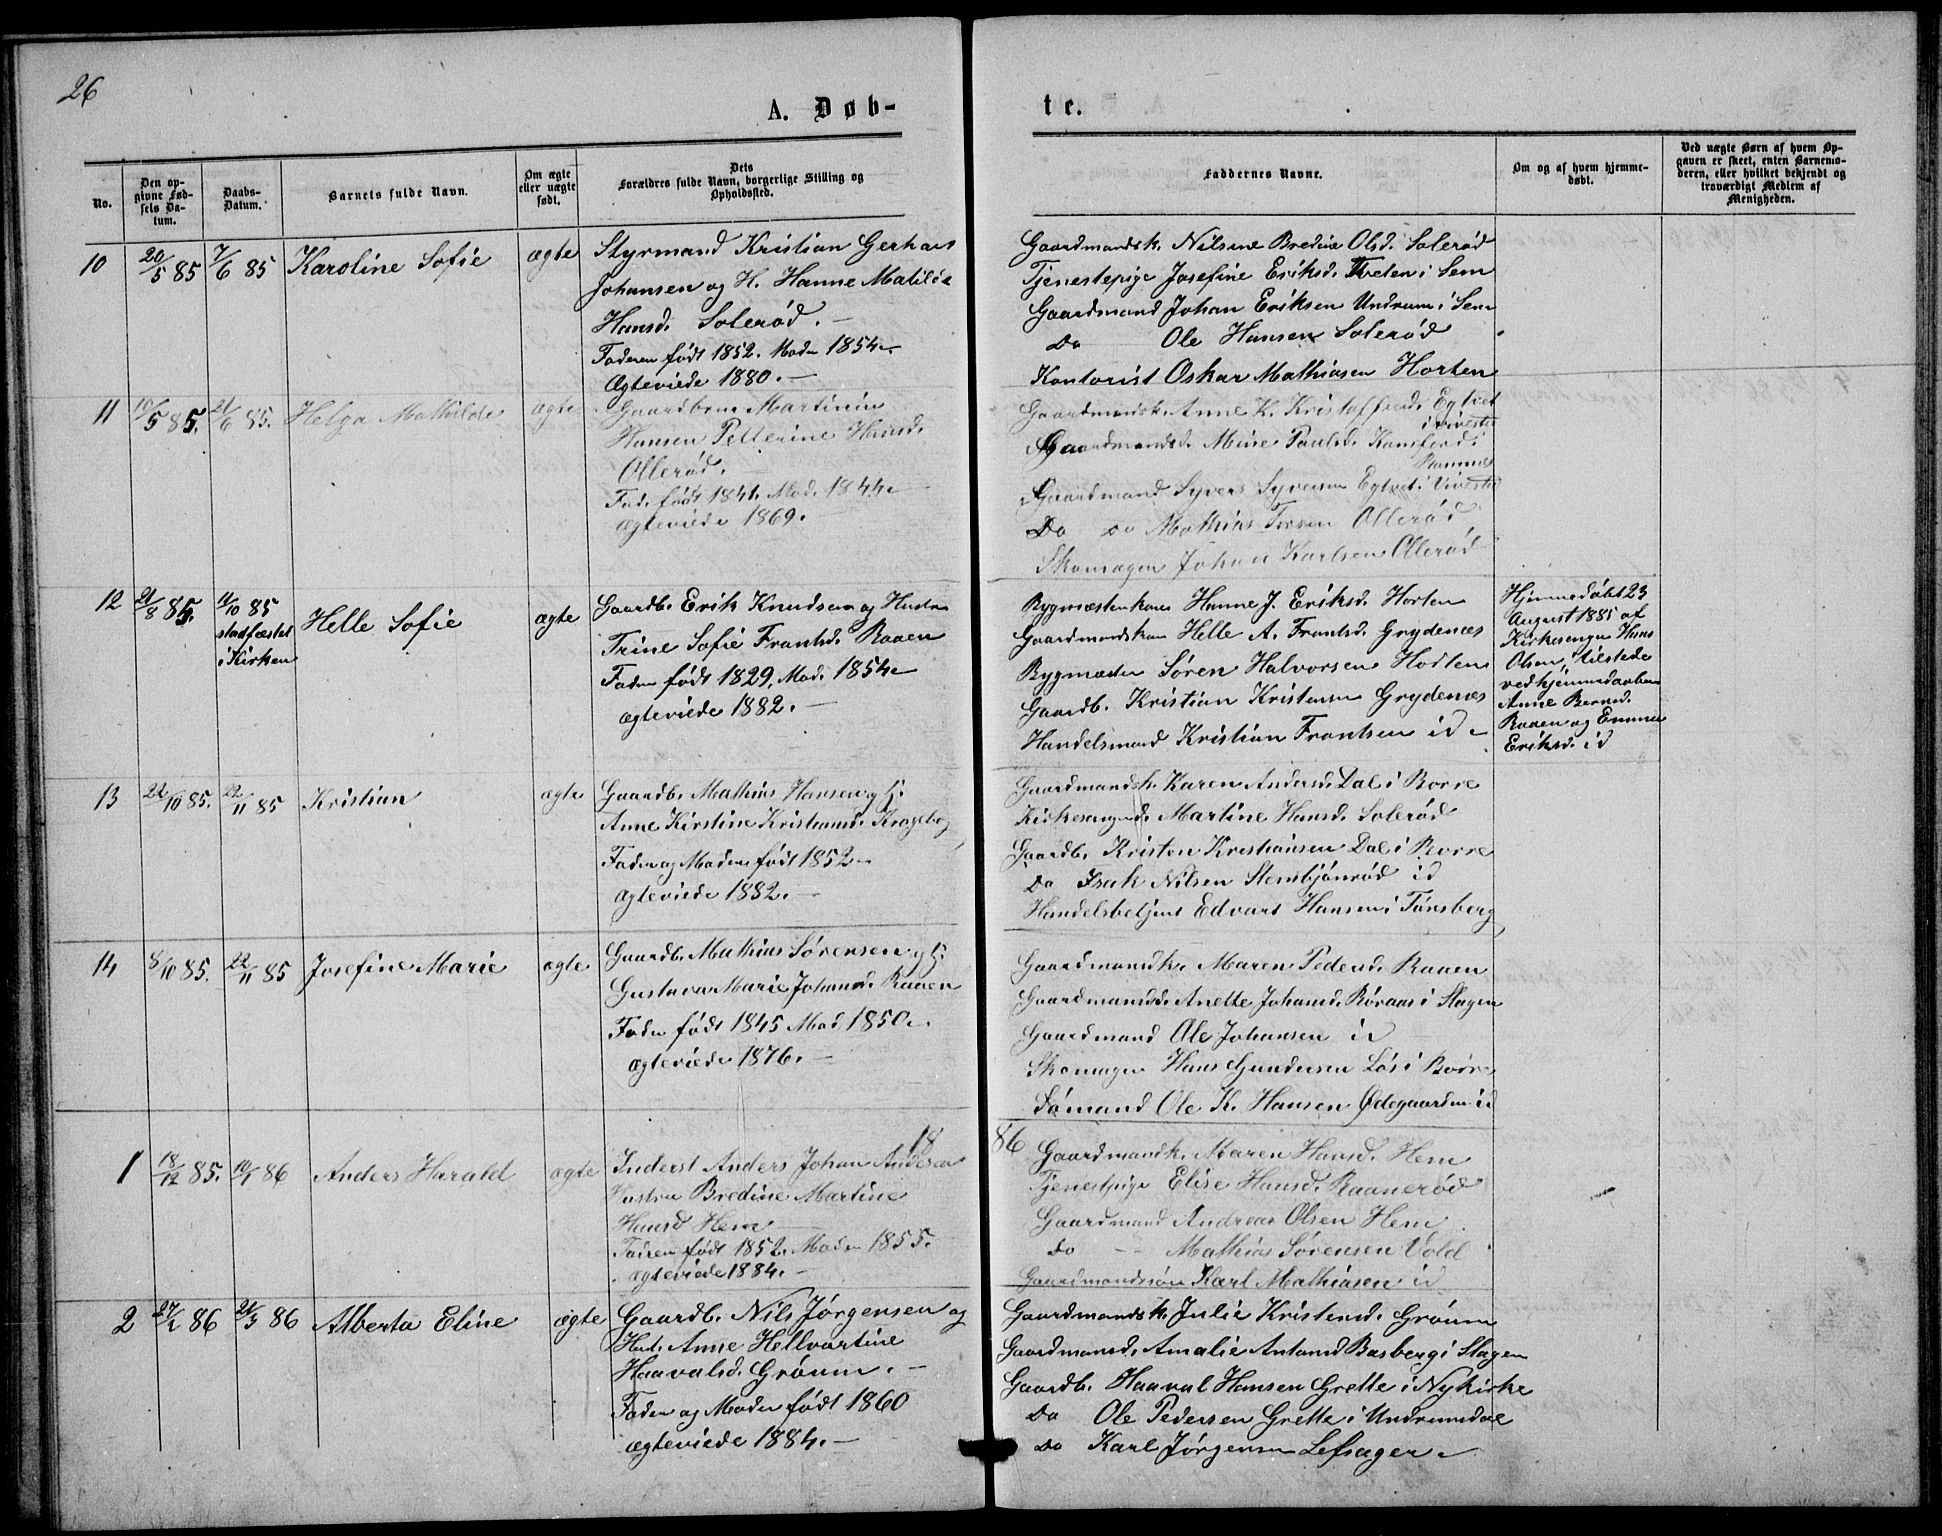 26
A. Døb-
te.
No.
Den op-
givne Fød-
sels Da-
tum.
Daabs-
Datum.
Barnets fulde Navn.
Om ægte
eller uægte
født.
Dets
Forældres fulde Navn, borgerlige Stilling og
Opholdssted.
Faddernes Navne.
Om og af hvem hjemme-
døbt.
Ved uægte Børn af hvem Op-
gaven er skeet, enten Barnemo-
deren, eller hvilket bekjendt og
troværdigt Medlem af
Menigheden.
10
20/5 85
7/6 85
Karoline Sofie
ægte
Styrmand Kristian Gerhars
Johansen og H. Hanne Matilde
Hansd. Solerød. —
Faderen født 1852. Moder 1854. —
Ægteviede 1880. —
Gaardmandsk. Nilsine Bredine Olsd. Solerød
Tjenestepige Josefine Eriksd. Tveten i Sem
Gaardmand Johan Eriksen Undrum i Sem
Do Ole Hansen Solerød
Kontorist Oskar Mathiasen Horten
11
5 85.
21/6 85.
Helga Mathilde
ægte
Gaardbrur Martinius
Hansen Petterine Hansd.
Ollerød.
Fad. født 1841. Mod. 1844. —
ægteviede 1869.
Gaardmandsk. Anne K. Kristoffersd. Egtvet
i Vivestad
Gaardmandsd. Mine Paulsd.
Ramnes
Gaardmand Syvert Syversen Egtvet i Vivestad
Do Do Mathias Ollerød
Skomager Johan Karlsen Ollerød
12
21/8 85.
11/10 85
stadfæstet
i Kirken
Helle Sofie
ægte
Gaardb. Erik Knudsen og Hustru
Trine Sofie Frantsd. Raaen
Fader født 1829. Mod. 1854. —
ægteviede 1882. —
Bygmesterkone Hanne J. Eriksd. Horten
Gaardmandskone Helle A. Frantsd. Grydenæs
Bygmester Søren Halvorsen Horten
Gaardb. Kristian Kristensen Grydenæs
Handelsmand Kristian Frantsen id —
Hjemmedøbt 23
August 1885 af
Kirkesanger Hans
Olsen, tilstede
ved hjemmedaaben
Anne Berntsd.
Raaen og Emma
Eriksd. id
13
22/10 85.
22/11 85
Kristian
ægte
Gaardb. Mathias Hansen og H.
Anne Kirstine Kristiansd.
Fader og Moder født 1852 —
ægteviede 1882. —
Gaardmandsk. Karen Andersd. Dal i Borre
Kirkesangerd. Martine Hansd. Solerød
Gaardb. Kristen Kristiansen Dal i Borre
Do Isak Nilsen Stensbjønrød id
Handelsbetjent Edvart Hansen i Tønsberg
14
8/10 85.
22/11 85
Josefine Marie
ægte
Gaardb. Mathias Sørensen og H.
Gustava Marie Johansd. Raaen
Fader født 1845 Mod. 1850. —
ægteviede 1876. —
Gaardmandsk. Maren Pedersd. Raaen
Gaardmandsd. Anette Johansd. Røraas i Slagen
Gaardmand Ole Johansen id
Skomager Hans Gundersen Løs i Borre
Sømand Ole K. Hansen Ødegaarden id
18
86
1
18/12 85.
10/1 86
Anders Harald
ægte
Inderst Anders Johan Andersen
Hustru Bredine Martine
Hansd Hem
Faderen født 1852. Moder 1855.
ægteviede 1884. —
Gaardmandk. Maren Hansd. Hem
Tjenestpige Elise Hansd. Raanerød
Gaardmand Andreas Olsen Hem
Do — Mathias Sørensen Vold
Gaardmandssøn Karl Mathiasen id
2
86
21/3 86
Alberta Eline
ægte
Gaardb. Nils Jørgensen og
Hust. Anne Hellvartine
Haavalsd. Grøum. —
Fader og Moder født 1860
ægteviede 1884. —
Gaardmandsk. Julie Kristensd. Grøum
Gaardmansd. Amalie Antonsd Basberg i Slagen
Gaardb. Haaval Hansen Grette i Nykirke
Do Ole Pedersen Grette i Undrumsdal
Do Karl Jørgensen Lefsager —